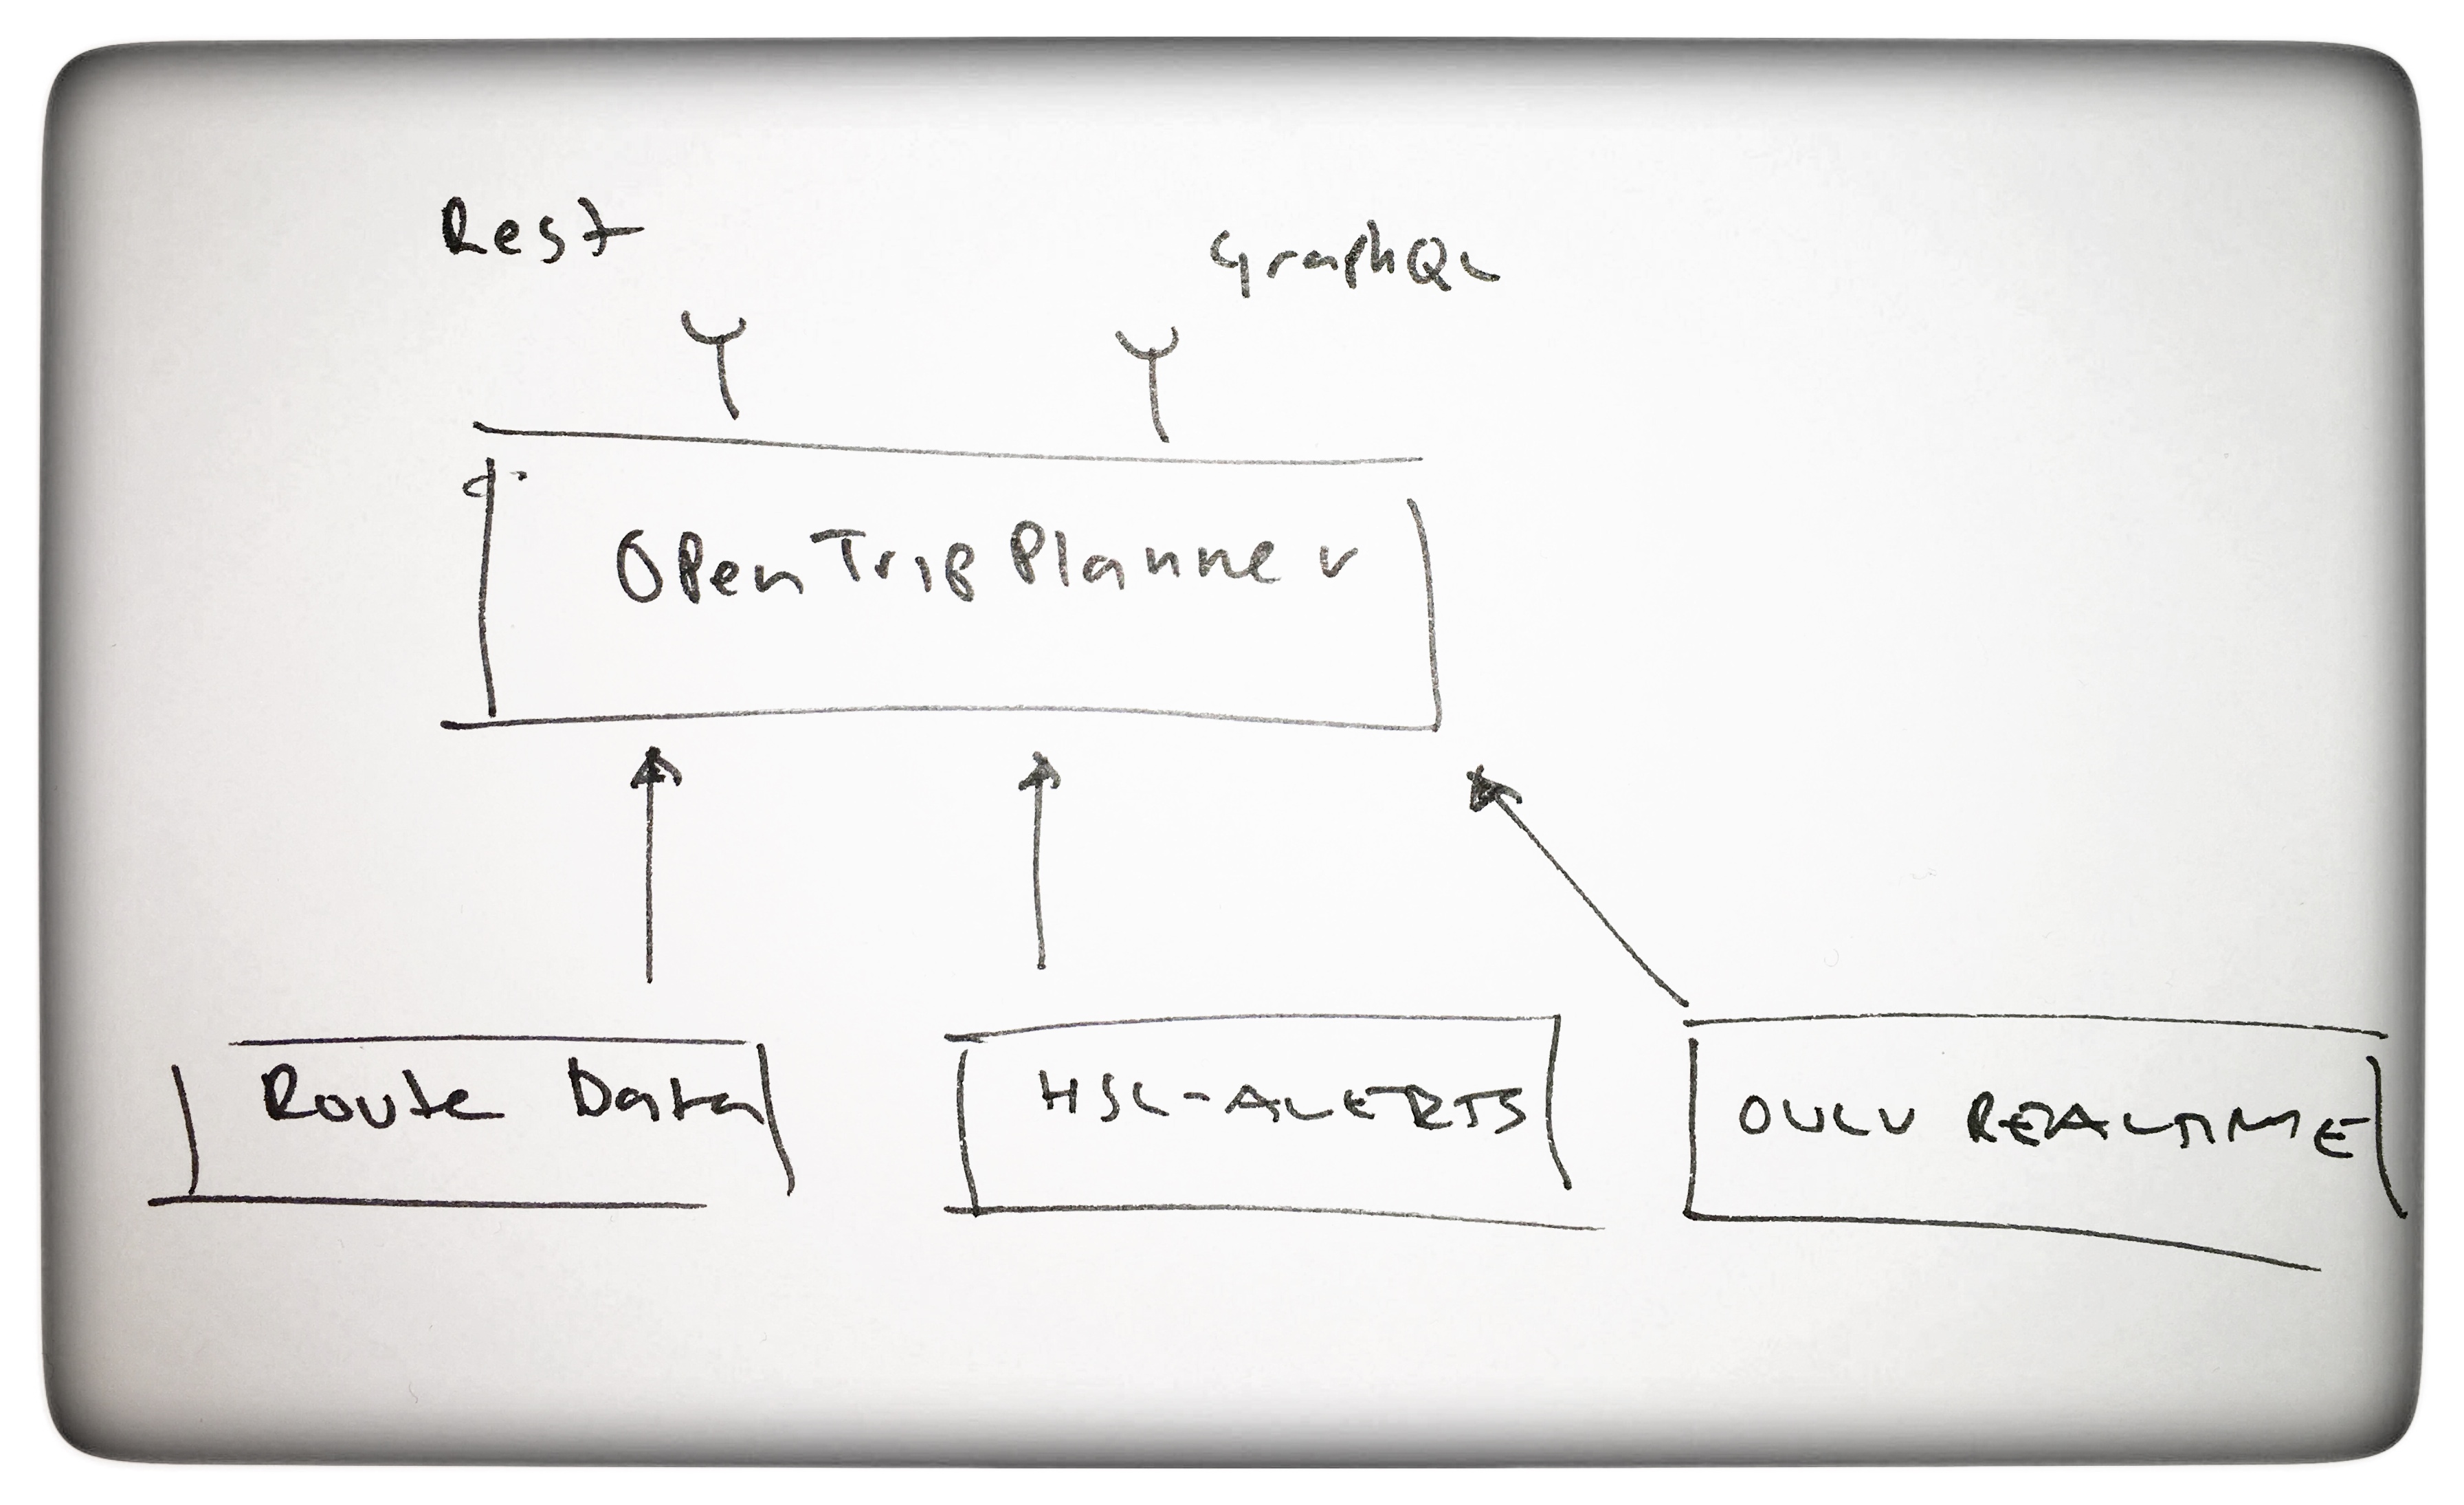 Rest
GraphQL
OpenTripPlanner
Route Data
HSL-ALERTS
OULU REALTIME